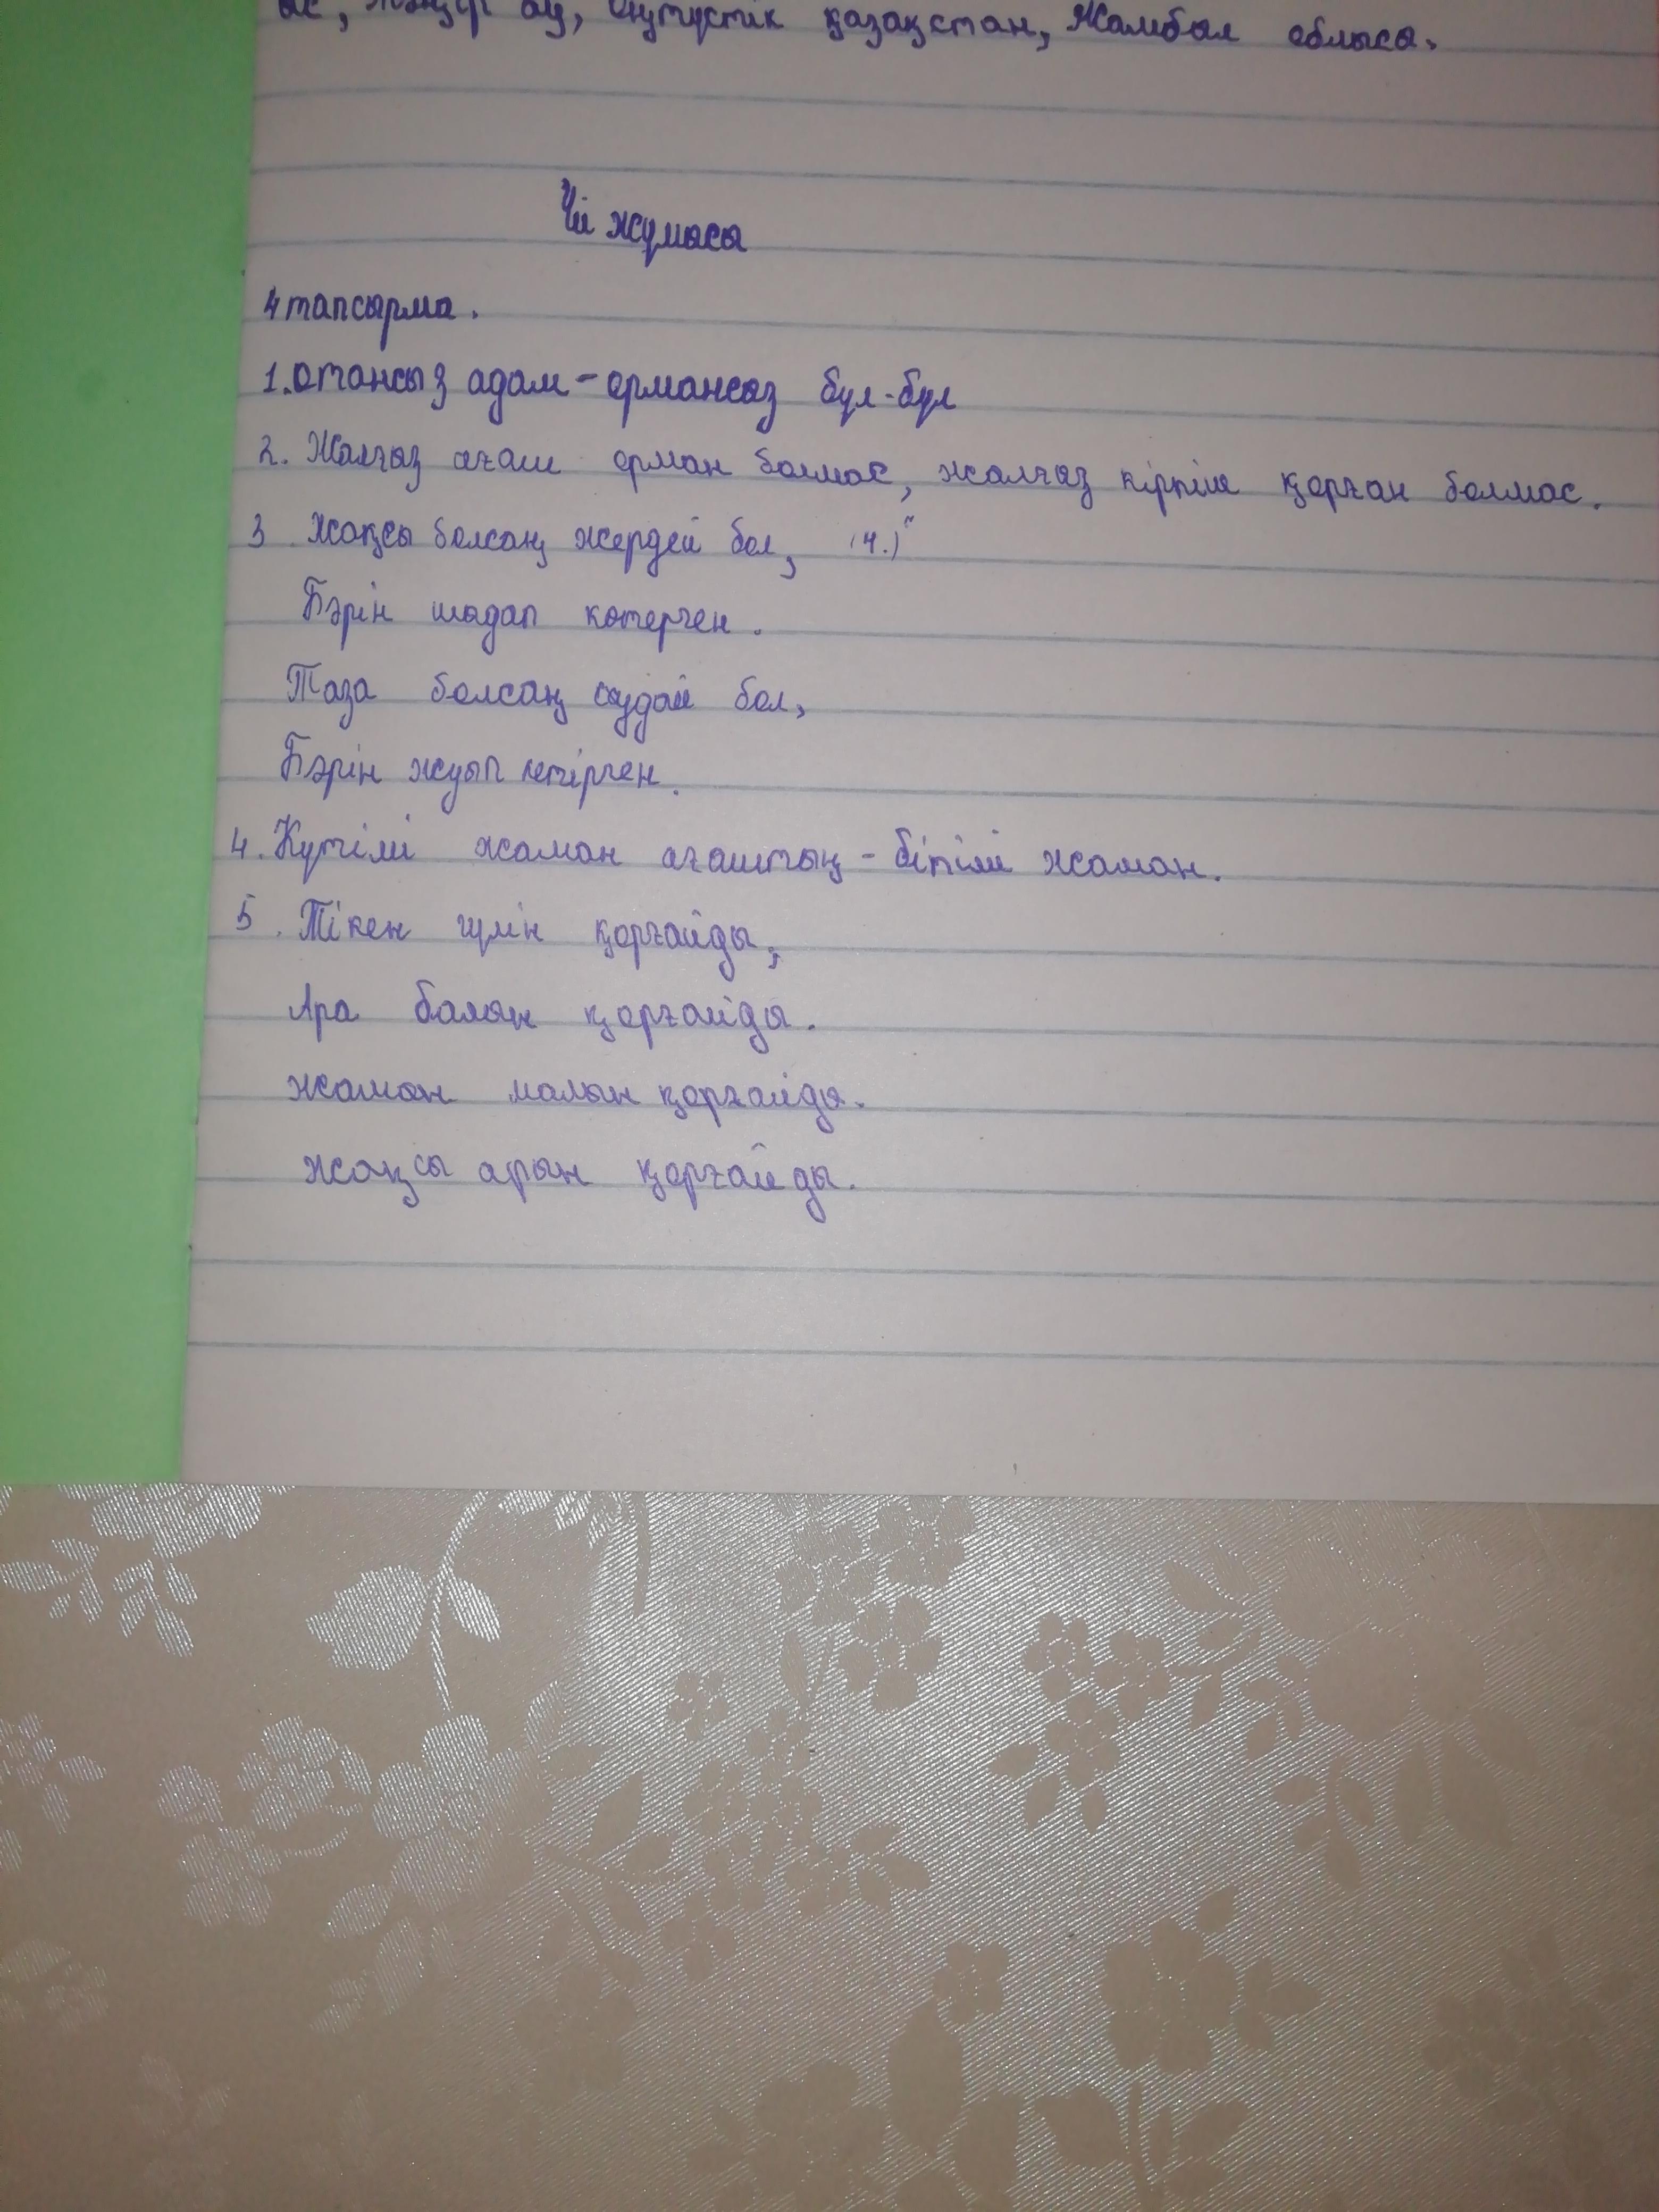 Оңтүстік қазақстан, Жамбыл облысы.
Үй жұмысы
4 тапсырма.
1. Отансыз адам - ормансыз бұл-бұл
2. Жалғыз ағаш орман болмас, жалғыз кірпіш қорған болмас.
3. Жақсы болсаң жердей бол, (4.)
Бәрін шыдап көтерген.
Таза болсаң судай бол,
Бәрін жуып кетірген.
4. Күтімі жаман ағаштың - бітімі жаман.
5. Тікен гүлін қорғайды,
Ара балын қорғайды.
Жаман малын қорғайды.
Жақсы арын қорғайды.